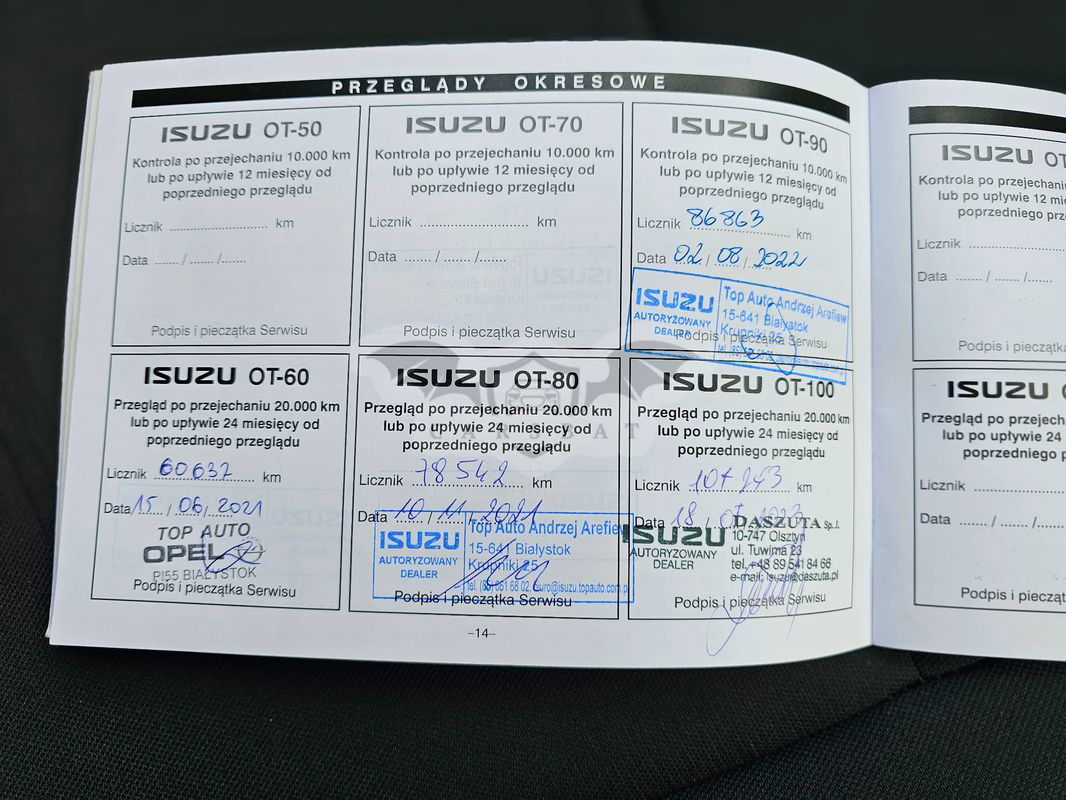 PRZEGLĄDY OKRESOWE
ISUZU OT-50
Kontrola po przejechaniu 10.000 km
lub po upływie 12 miesięcy od
poprzedniego przeglądu
Licznik ........................... km
Data ....... / ....... /.......
Podpis i pieczątka Serwisu
ISUZU OT-70
Kontrola po przejechaniu 10.000 km
lub po upływie 12 miesięcy od
poprzedniego przeglądu
Licznik ........................... km
Data ....... / ....... /.......
Podpis i pieczątka Serwisu
ISUZU OT-90
Kontrola po przejechaniu 10.000 km
lub po upływie 12 miesięcy od
poprzedniego przeglądu
Licznik 86863 km
Data 02 / 08 / 2022
ISUZU
AUTORYZOWANY
DEALER
Top Auto Andrzej Arefiew
15-641 Białystok
Krupniki 25
Podpis i pieczątka Serwisu
ISUZU OT-60
Przegląd po przejechaniu 20.000 km
lub po upływie 24 miesięcy od
poprzedniego przeglądu
Licznik 60637 km
Data 15 / 06 / 2021
TOP AUTO
OPEL
PI55 BIAŁYSTOK
Podpis i pieczątka Serwisu
ISUZU OT-80
Przegląd po przejechaniu 20.000 km
lub po upływie 24 miesięcy od
poprzedniego przeglądu
Licznik 78542 km
Data 10 / 11 / 2021
ISUZU
AUTORYZOWANY
DEALER
Top Auto Andrzej Arefiew
15-641 Białystok
Krupniki 25
tel. (85) 661 68 02, biuro@isuzu.topauto.com.pl
Podpis i pieczątka Serwisu
ISUZU OT-100
Przegląd po przejechaniu 20.000 km
lub po upływie 24 miesięcy od
poprzedniego przeglądu
Licznik km
Data 18 / 07 / 2023
ISUZU
AUTORYZOWANY
DEALER
DASZUTA Sp. J.
10-747 Olsztyn
ul. Tuwima 23
tel. +48 89 541 84 66
e-mail: isuzu@daszuta.pl
Podpis i pieczątka Serwisu
CARSBAT
–14–
ISUZU
Kontrola po przejechani
lub po upływie 12
poprzedniego prz
Licznik
Data ....... / ....... /.......
Podpis i pieczątka
ISUZU
Przegląd po przejechan
lub po upływie 24
poprzedniego
Licznik
Data ....... / ....... /.......
Podpis i pieczątka